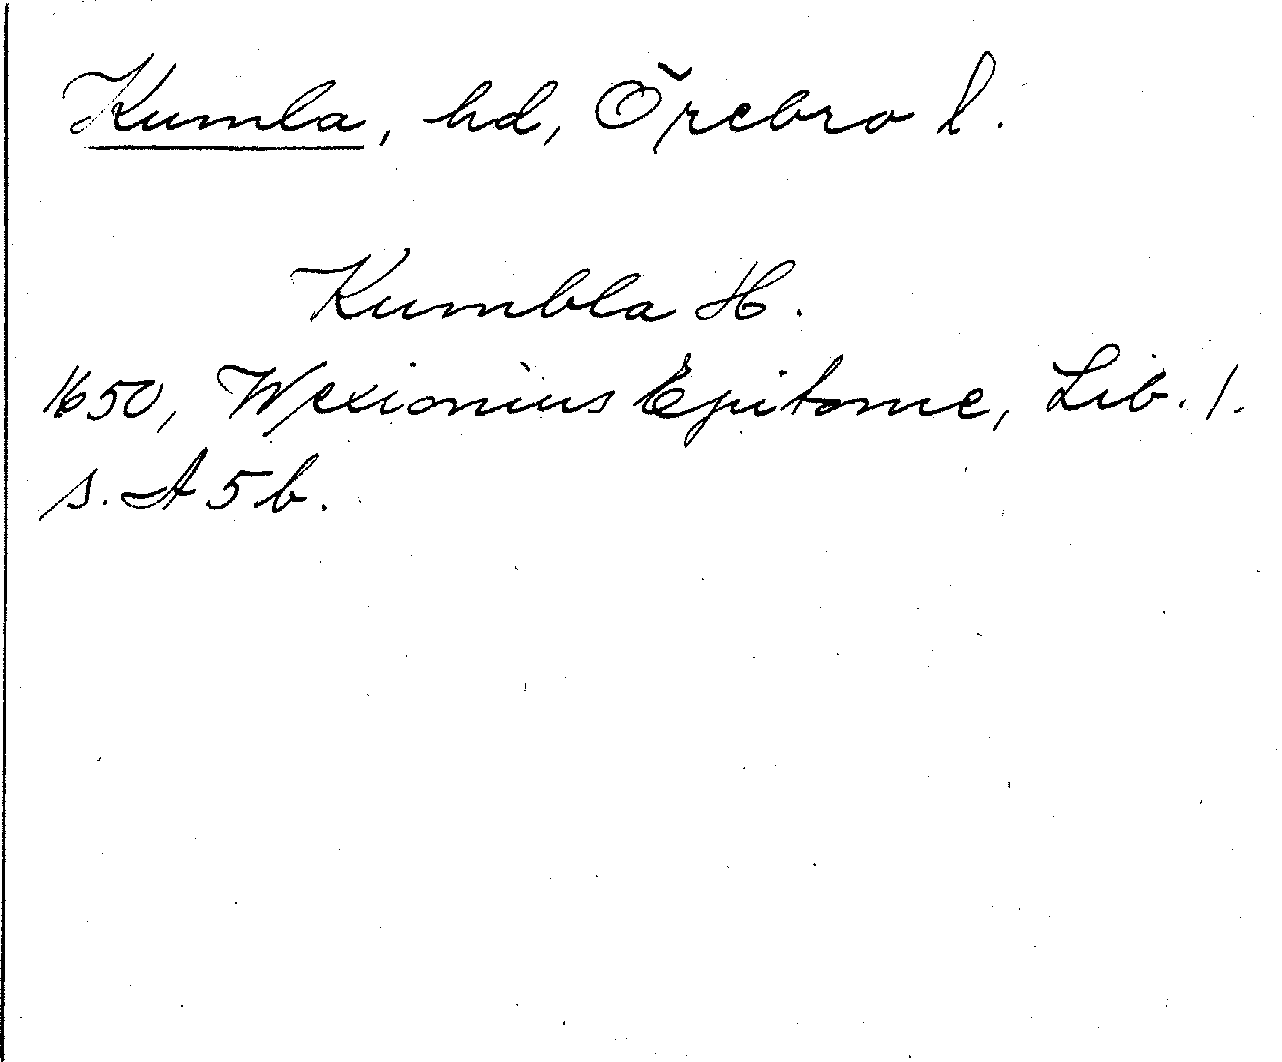 Kumla, hd, Örebro l.
Kumbla H.
1650, Wexionius Epitome, Lib. 1.
s. A 5 b.